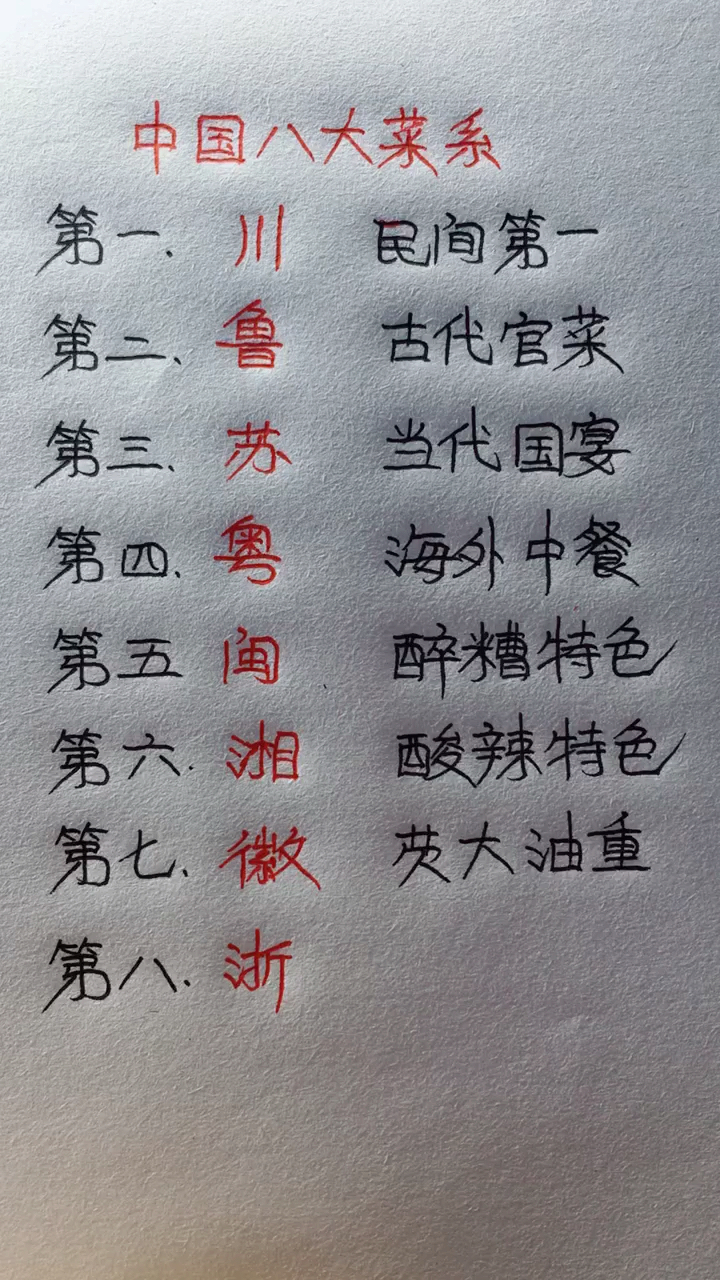 中国八大菜系
第一. 川 民间第一
第二、鲁 古代官菜
第三、苏 当代国宴
第四、粤 海外中餐
第五 闽 醉糟特色
第六. 湘 酸辣特色
第七、徽 芡大油重
第八、浙